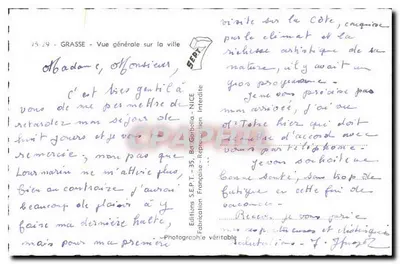 25-29 - GRASSE - Vue générale sur la ville
SEPT
Madame, Monsieur,
C'est bien gentil à
vous de me permettre de
retarder mon séjour de
huit jours et je vous
remercie, non pas que
Lourmarin ne m'attire plus,
bien au contraire j'aurai
beaucoup de plaisir à y
faire ma dernière halte,
mais pour ma première
visite sur la Côte, conquise
par le climat et la
richesse artistique de sa
nature, il y avait un
gros programme.
Je ne vous précise pas
mon arrivée, j'ai vu
Mr Totte hier qui doit
se mettre d'accord avec
vous par téléphone.
Je vous souhaite
bonne santé, sans trop de
fatigue en cette fin de
vacances.
Recevez je vous prie
mes respectueuses et
salutations.
Editions S.E.P.T. - 35, Bd Gorbella - NICE
Fabrication Française - Reproduction Interdite
Photographie véritable
CPARAMA